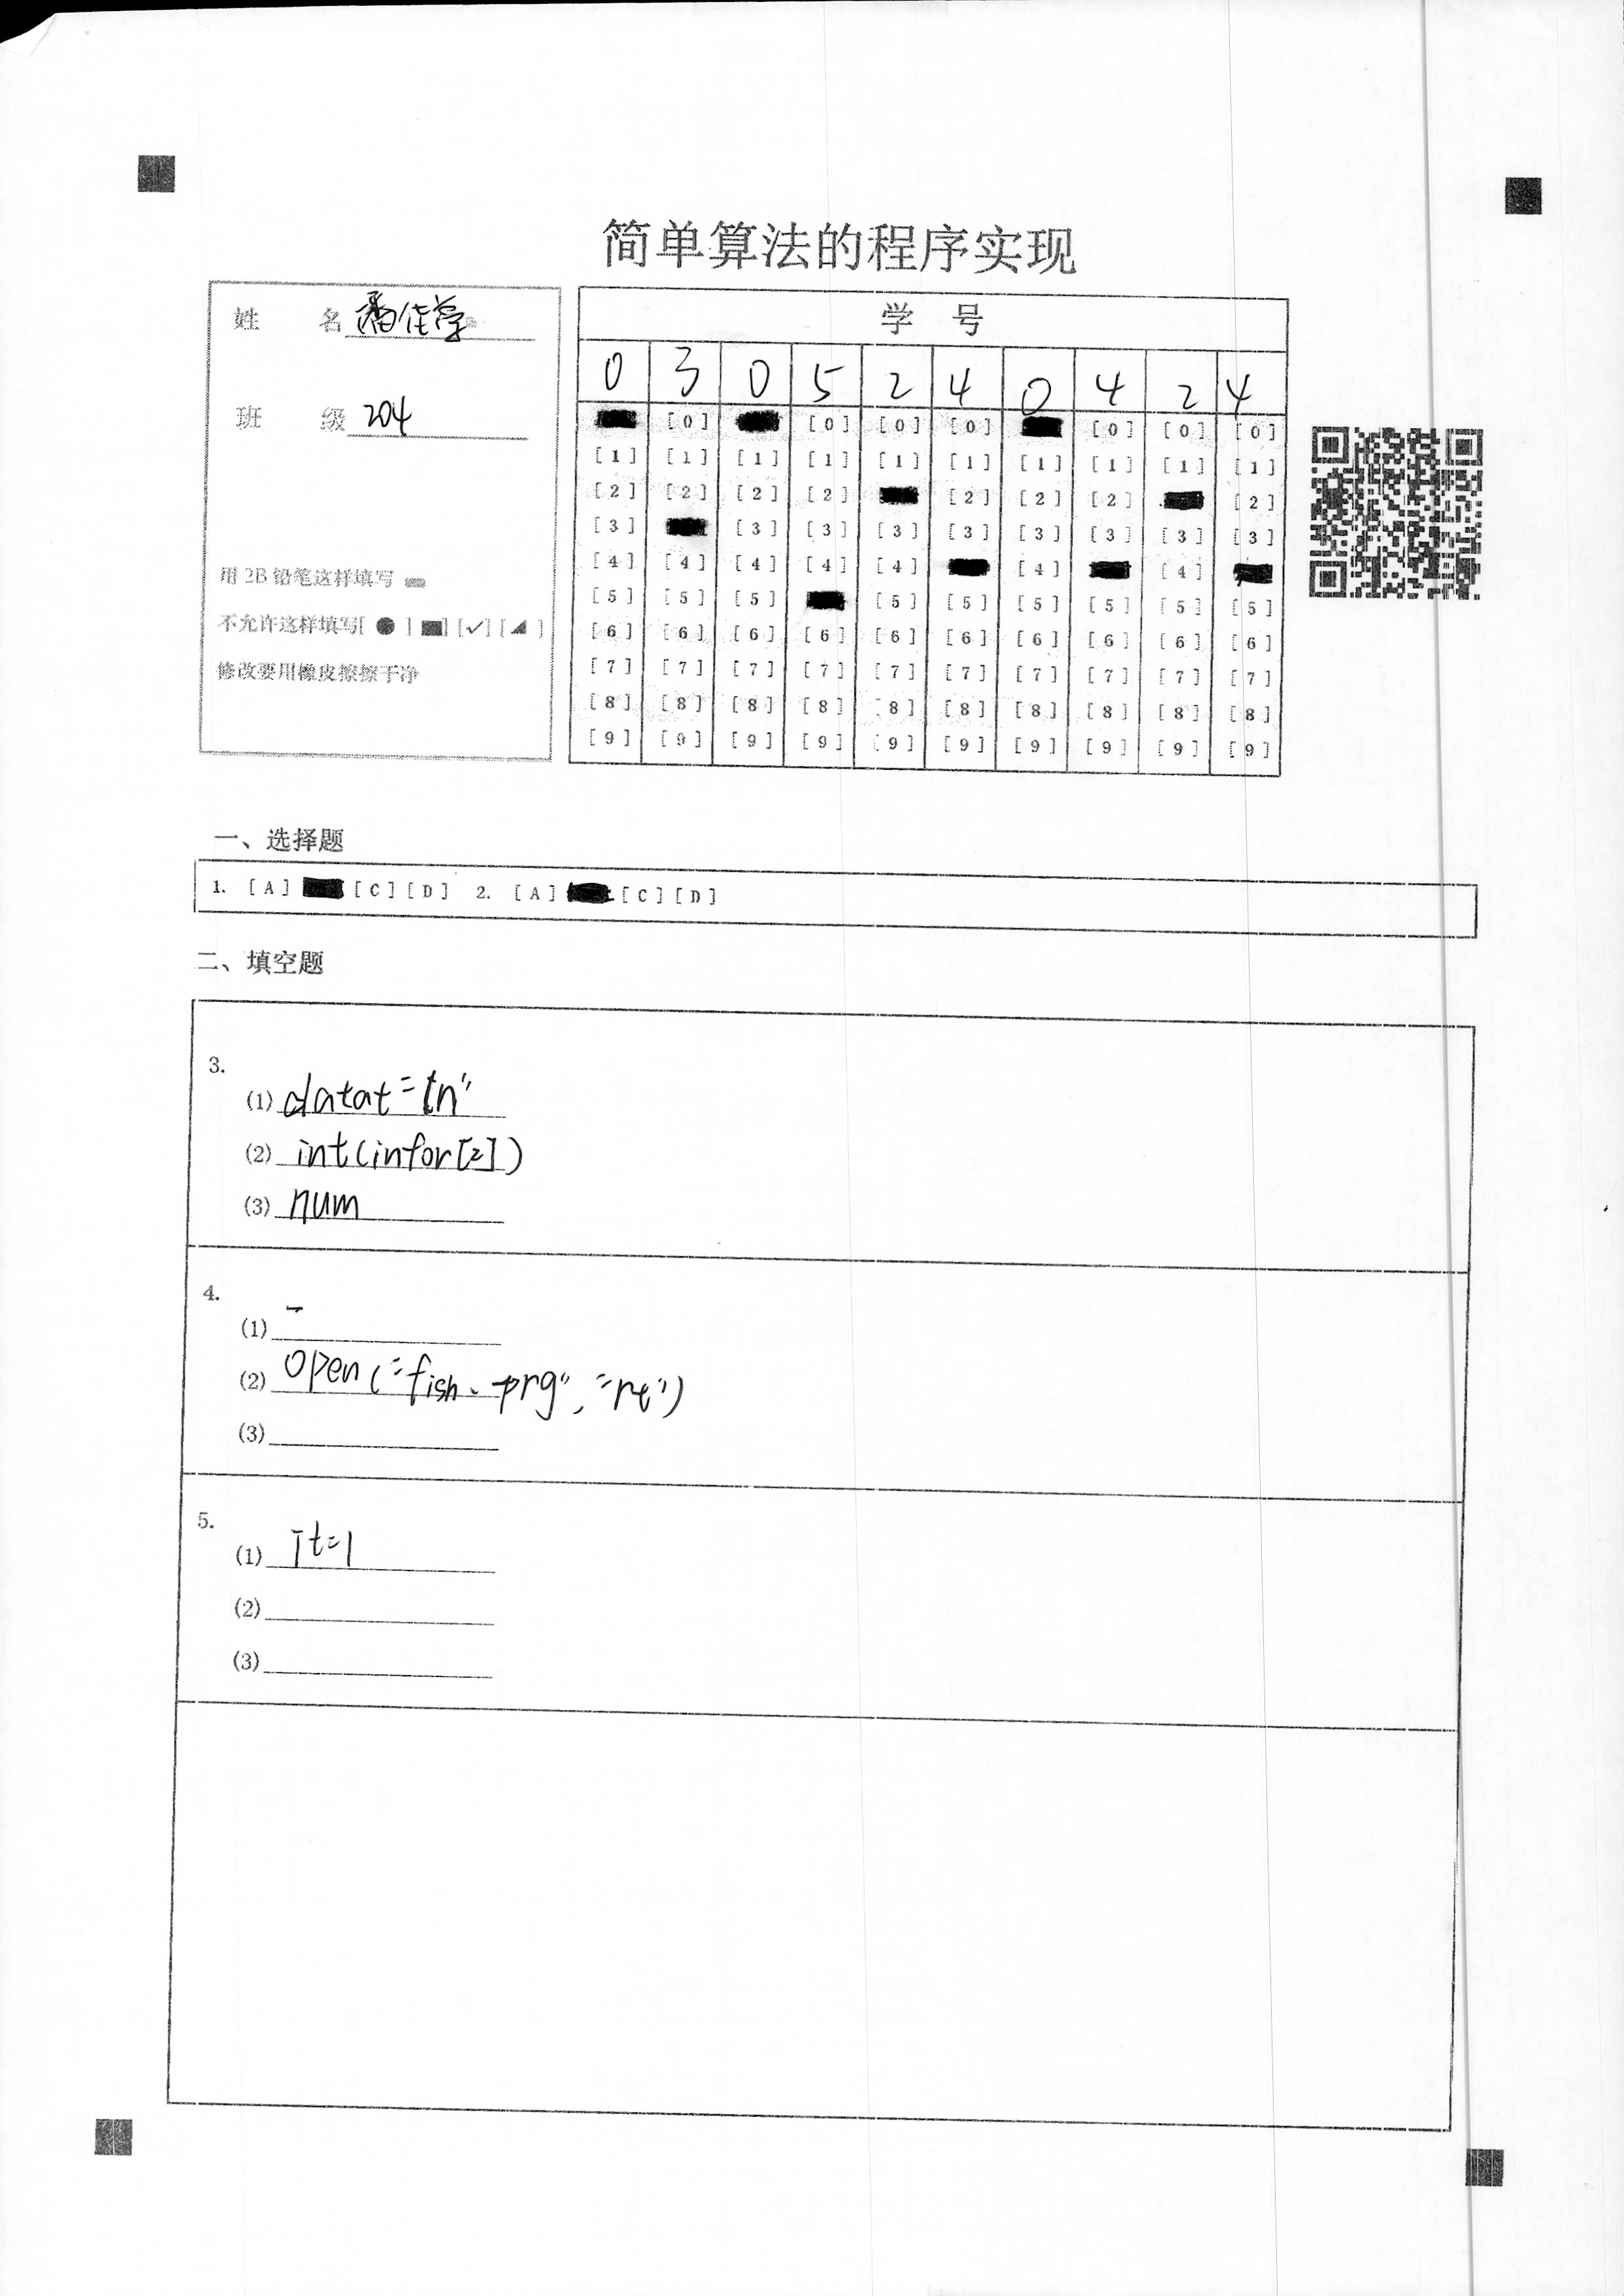 简单算法的程序实现
姓 名 潘佳学
班 级 204
用 2B 铅笔这样填写
不允许这样填写[ ● ] [■] [✓] [◢ ]
修改要用橡皮擦擦干净
学 号
0 3 0 5 2 4 0 4 2 4
[0] [0] [0] [0] [0] [0] [0]
[1] [1] [1] [1] [1] [1] [1] [1] [1] [1]
[2] [2] [2] [2] [2] [2] [2] [2]
[3] [3] [3] [3] [3] [3] [3] [3] [3]
[4] [4] [4] [4] [4] [4] [4]
[5] [5] [5] [5] [5] [5] [5] [5] [5]
[6] [6] [6] [6] [6] [6] [6] [6] [6] [6]
[7] [7] [7] [7] [7] [7] [7] [7] [7] [7]
[8] [8] [8] [8] [8] [8] [8] [8] [8] [8]
[9] [9] [9] [9] [9] [9] [9] [9] [9] [9]
一、选择题
1. [A] [C] [D] 2. [A] [C] [D]
二、填空题
3.
(1) datat=
(2) int(infor[2])
(3) num
4.
(1) -
(2) open("fish、prg", "rt")
(3)
5.
(1) it=1
(2)
(3)